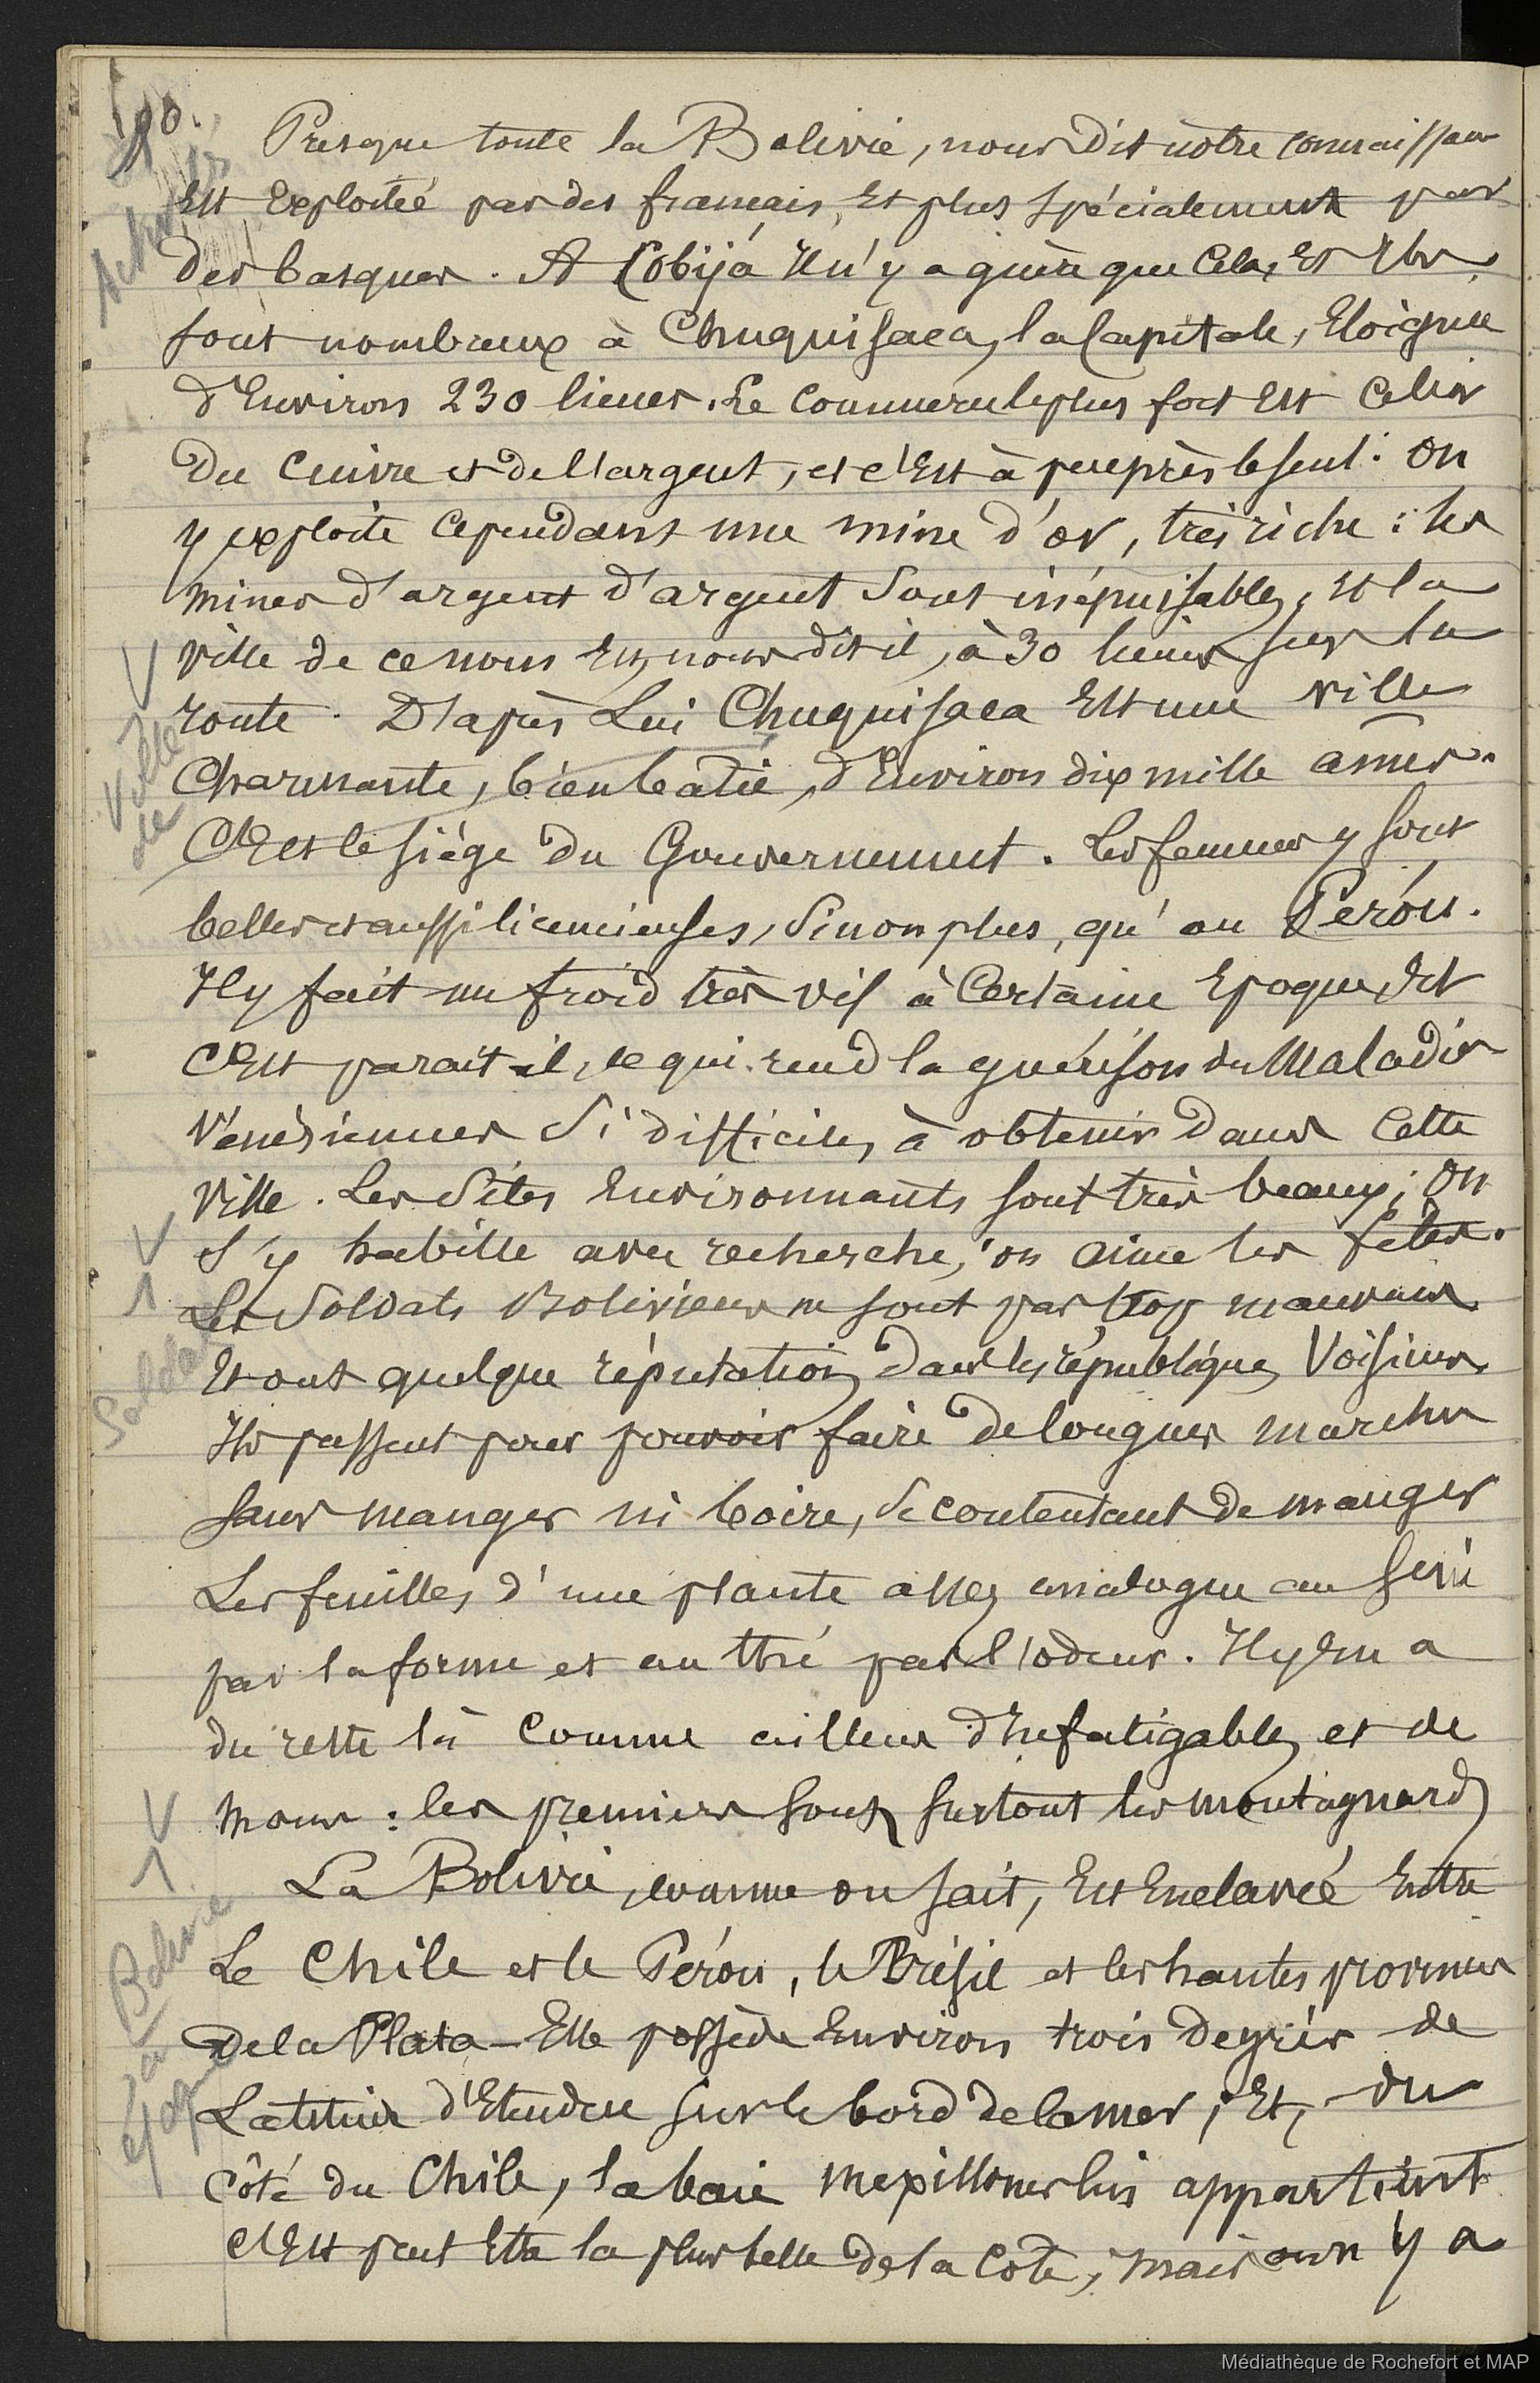 100.
Presque toute la Bolivie, nous dit notre connaissance
Est Exploitée par des français, Et plus spécialement par
des basques. A Cobija Il n'y a guère que Cela, Et Ils
sont nombreux à Chuquisaca, la Capitale, Eloignée
d'Environ 230 lieues. Le Commerce le plus fort Est Celui
du Cuivre et de l'argent, et c'Est à peu près le seul : on
y exploite Cependant une mine d'or, très riche : les
mines d'argent d'argent sont inépuisables, et la
ville de ce nom Est, nous dit il, à 30 lieues sur la
route. D'après Lui Chuquisaca Est une ville
Charmante, bien batie, d'Environ dix mille ames.
C'Est le siège du Gouvernement. Les femmes y sont
belles et aussi licencieuses, sinon plus, qu'au Pérou.
Il y fait un froid très vif à Certaine Epoque, Et
C'Est parait-il, ce qui rend la guérison des Maladies
Vénériennes si difficiles à obtenir dans Cette
Ville. Les Sites Environnants sont très beaux ; On
s'y habille avec recherche, on aime les fêtes.
Les Soldats Boliviens ne sont pas trop mauvais
Et ont quelque réputation dans les républiques Voisines
Ils passent pour pouvoir faire de longues marches
sans manger ni boire, se contentant de manger
Les feuilles d'une plante assez analogue au séné
par la forme et au thé par l'odeur. Il y en a
du reste là Comme ailleurs d'Infatigables et de
mous : les premiers sont surtout les montagnards
La Bolivie, comme on sait, Est Enclavée Entre
Le Chile et le Pérou, le Brésil et les hautes provinces
de la Plata - Elle possède Environ trois degrés de
Latitude d'Etendue sur le bord de la mer ; Et, du
Côté du Chile, la baie mexillones lui appartient
C'Est peut Etre la plus belle de la Côte, mais on n'y a
Ville
de
Soldats
La Bolivie
Médiathèque de Rochefort et MAP